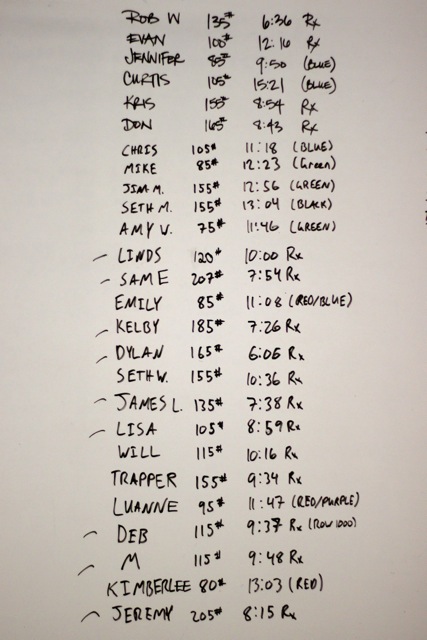 ROB W 135# 6:36 Rx
EVAN 100# 12:16 Rx
JENNIFER 85# 9:50 (BLUE)
CURTIS 105# 15:21 (BLUE)
KRIS 155# 8:54 Rx
DON 165# 8:43 Rx
CHRIS 105# 11:18 (BLUE)
MIKE 85# 12:23 (Green)
JIM M. 155# 12:56 (GREEN)
SETH M. 155# 13:04 (BLACK)
AMY V. 75# 11:46 (GREEN)
– LINDS 120# 10:00 Rx
– SAM E 207# 7:54 Rx
EMILY 85# 11:08 (RED/BLUE)
– KELBY 185# 7:26 Rx
– DYLAN 165# 6:05 Rx
SETH W. 155# 10:36 Rx
– JAMES L. 135# 7:38 Rx
– LISA 105# 8:59 Rx
WILL 115# 10:16 Rx
TRAPPER 155# 9:34 Rx
LUANNE 95# 11:47 (RED/PURPLE)
– DEB 115# 9:37 Rx (ROW 1000)
– M 115# 9:48 Rx
KIMBERLEE 80# 13:03 (RED)
– JEREMY 205# 8:15 Rx